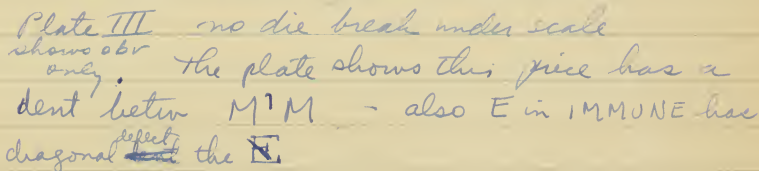 Plate III no die break under scale
shows obv
only. The plate shows this piece has a
dent betw M M - also E in IMMUNE has
diagonal defect the E